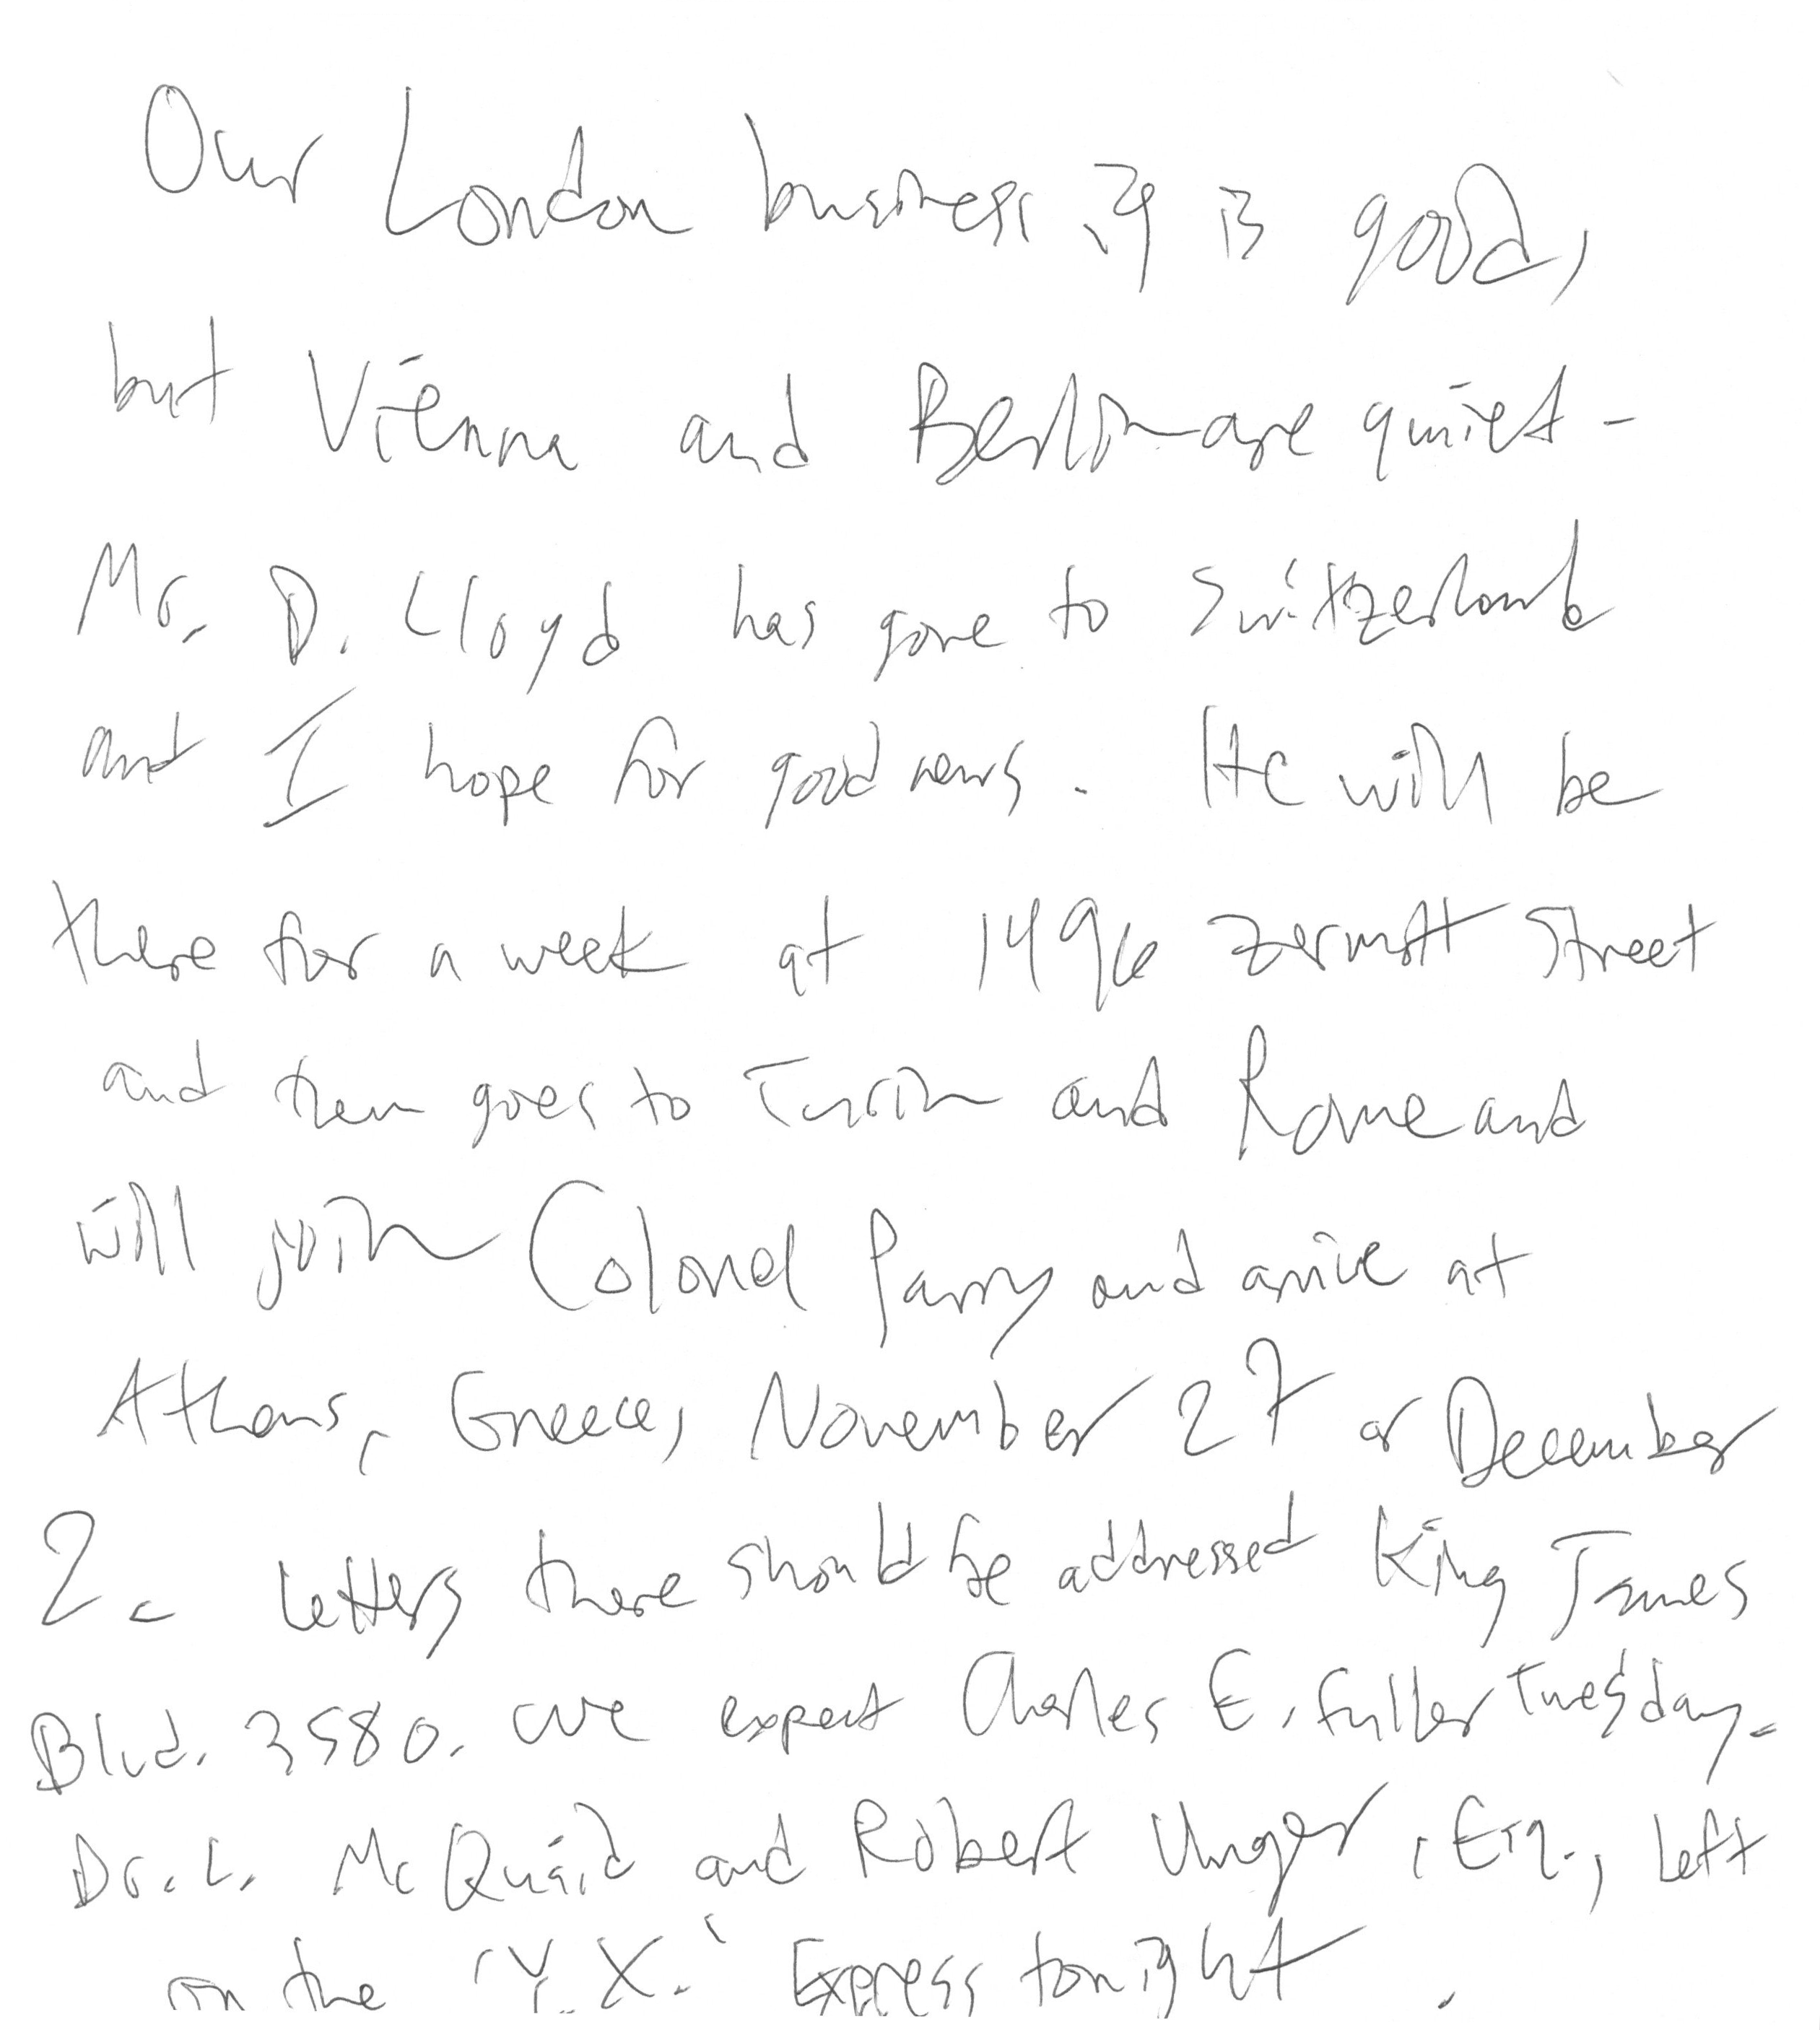 Our London business ig is good,
but Vienna and Berlin are quiet -
Mr. D. Lloyd has gone to Switzerland
and I hope for good news. He will be
there for a week at 1496 Zermott Street
and then goes to Turin and Rome and
will join Colonel Parry and arrive at
Athens, Greece, November 27 or December
2. Letters there should be addressed King James
Blvd. 3580. We expect Charles E. Fuller Tuesday.
Dr. L. McQuaid and Robert Unger, Esq., left
on the 'Y.X.' Express tonight.